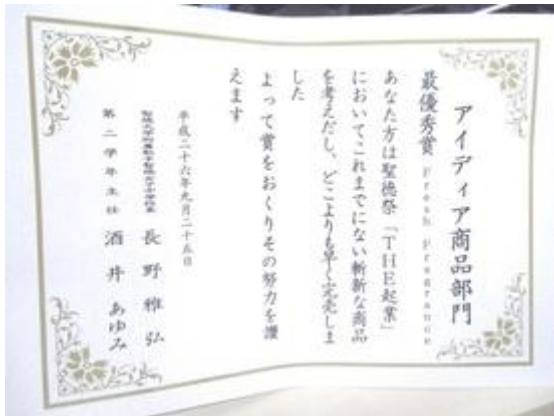 アイディア商品部門
最優秀賞 Fresh Fragrance
あなた方は聖徳祭「THE起業」
においてこれまでにない斬新な商品
を考えだし、どこよりも早く完売しま
した
よって賞をおくりその努力を讃
えます
平成二十六年九月二十五日
聖徳大学附属取手聖徳女子中学校長 長野雅弘
第二学年主任 酒井あゆみ